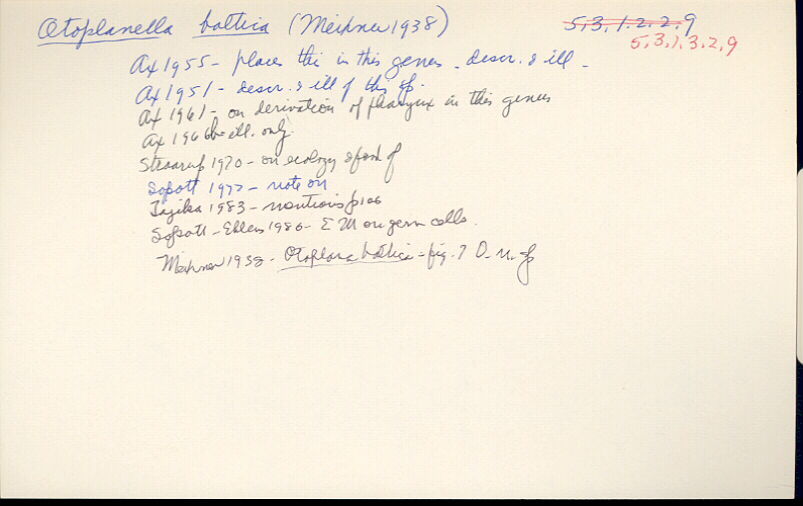 Otoplanella baltica (Meixner 1938) 5,3,1.2.2.9
5,3,1,3,2,9
Ax 1955 - places this in this genus - descr. & ill -
Ax 1951 - descr. & ill of this sp.
Ax 1961 - on derivation of pharynx in this genus
Ax 1966 ill. only.
Straarup 1970 - on ecology & food of
Sopott 1972 - note on
Tajika 1983 - mentions p 106
Sopott-Ehlers 1986 - EM on germ cells.
Meixner 1938 - Otoplana baltica - fig. 7 O. n. sp